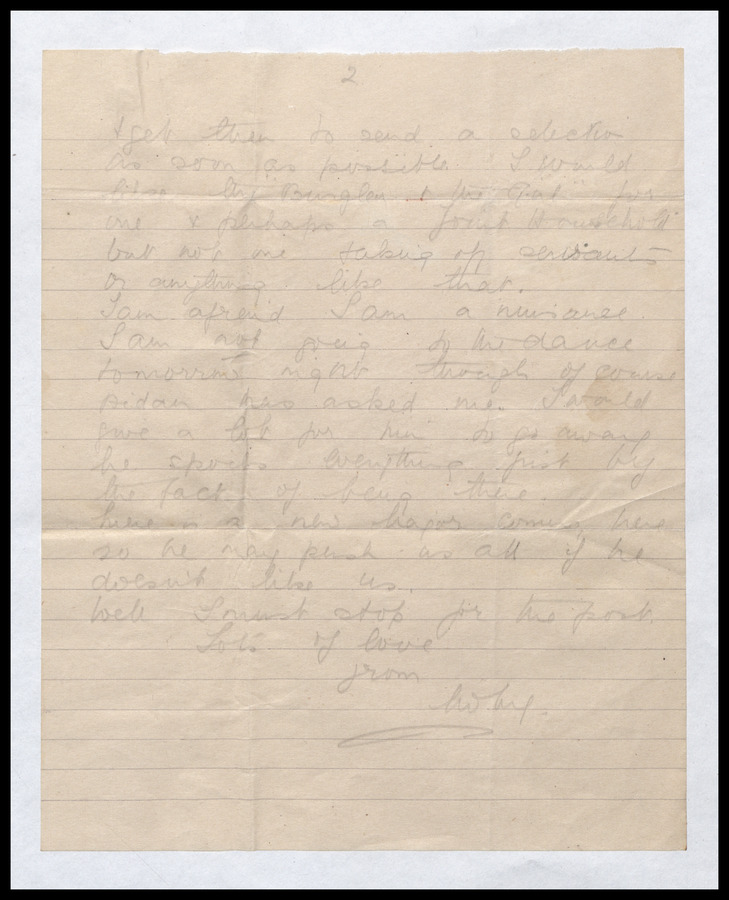 2
& get them to send a selection
as soon as possible. I would
like "My Burglar" & "The Goat" for
one & perhaps a Joint Household
but not one taking off servants
or anything like that.
I am afraid I am a nuisance.
I am not going to the dance
tomorrow night though of course
Aidan has asked me. I would
give a lot for him to go away
he spoils everything just by
the fact of being there.
There is a new Major coming here
so he may push us all if he
doesn't like us.
Well I must stop for the post.
Lots of love
from